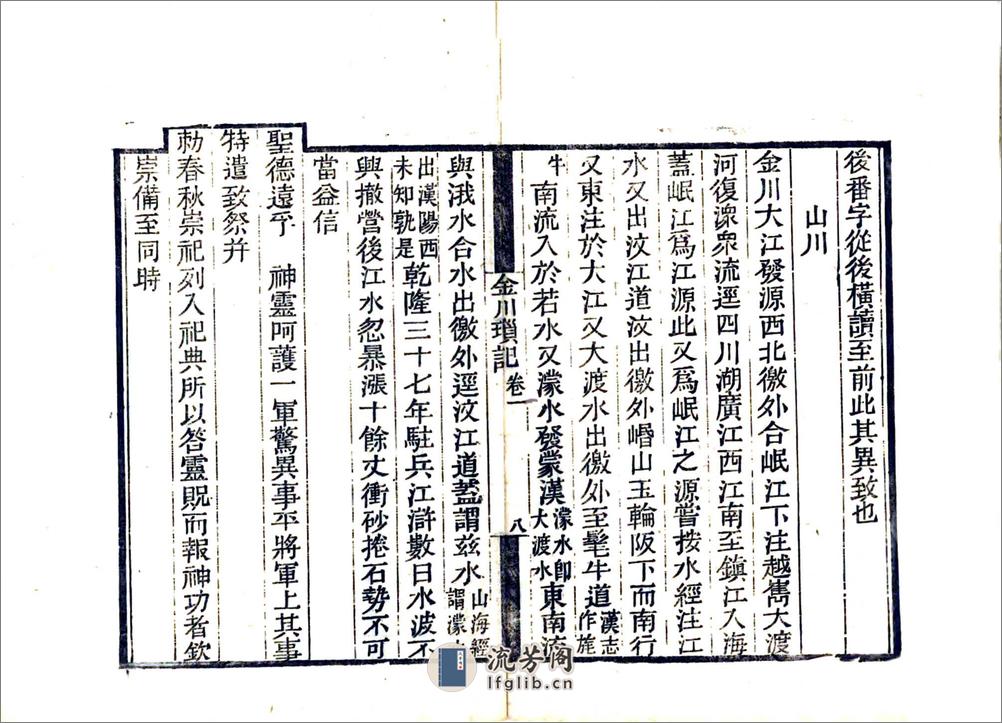 後番字從後橫讀至前此其異致也
山川
金川大江發源西北徼外合岷江下注越嶲大渡
河復潨衆流逕四川湖廣江西江南至鎮江入海
蓋岷江爲江源此又爲岷江之源嘗按水經注江
水又出汶江道汶出徼外崏山玉輪阪下而南行
又東注於大江又大渡水出徼外至髦牛道漢志作旄
牛南流入於若水又濛水發蒙漢濛水卽大渡水東南流
金川瑣記 卷一 八
與涐水合水出徼外逕汶江道蓋謂玆水山海經謂濛水
出漢陽西未知孰是乾隆三十七年駐兵江滸數日水波不
興撤營後江水忽暴漲十餘丈衝砂捲石勢不可
當益信
聖德遠乎 神靈呵護一軍驚異事平將軍上其事
特遣致祭幷
勅春秋崇祀列入祀典所以答靈貺而報神功者欽
崇備至同時
流芳阁
lfglib.cn